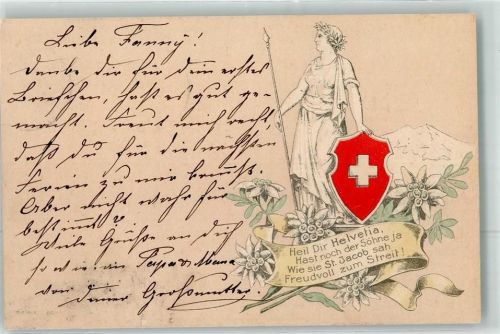 Liebe Fanny!
Danke dir für dein erstes
Briefchen, hast es gut ge-
macht. Freut mich recht,
daß du für die nächsten
Ferien zu mir kommst.
Aber nicht wahr für
bestimmt?
Viele Grüße an dich
so wie an Papa & Mama
von deiner Großmutter.
Heil Dir Helvetia,
Hast noch der Söhne ja
Wie sie St. Jacob sah
Freudvoll zum Streit!